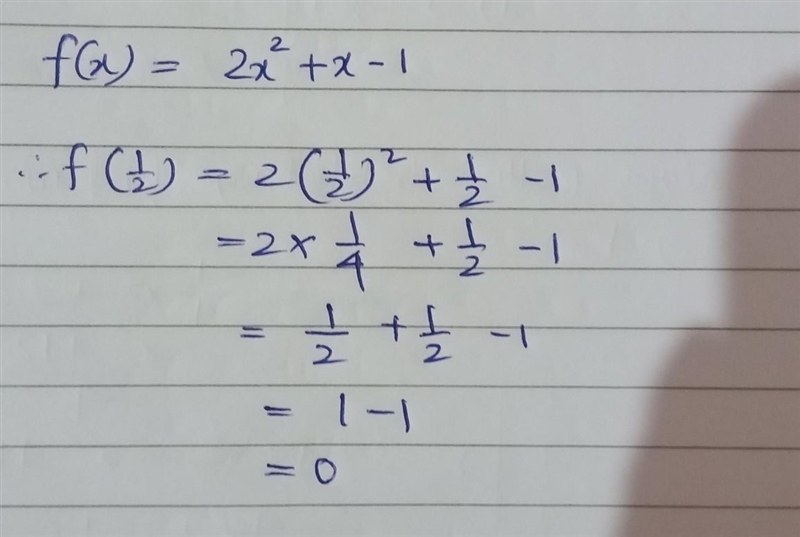 f(x) = 2x² + x - 1
∴ f(1/2) = 2(1/2)² + 1/2 - 1
= 2 × 1/4 + 1/2 - 1
= 1/2 + 1/2 - 1
= 1 - 1
= 0